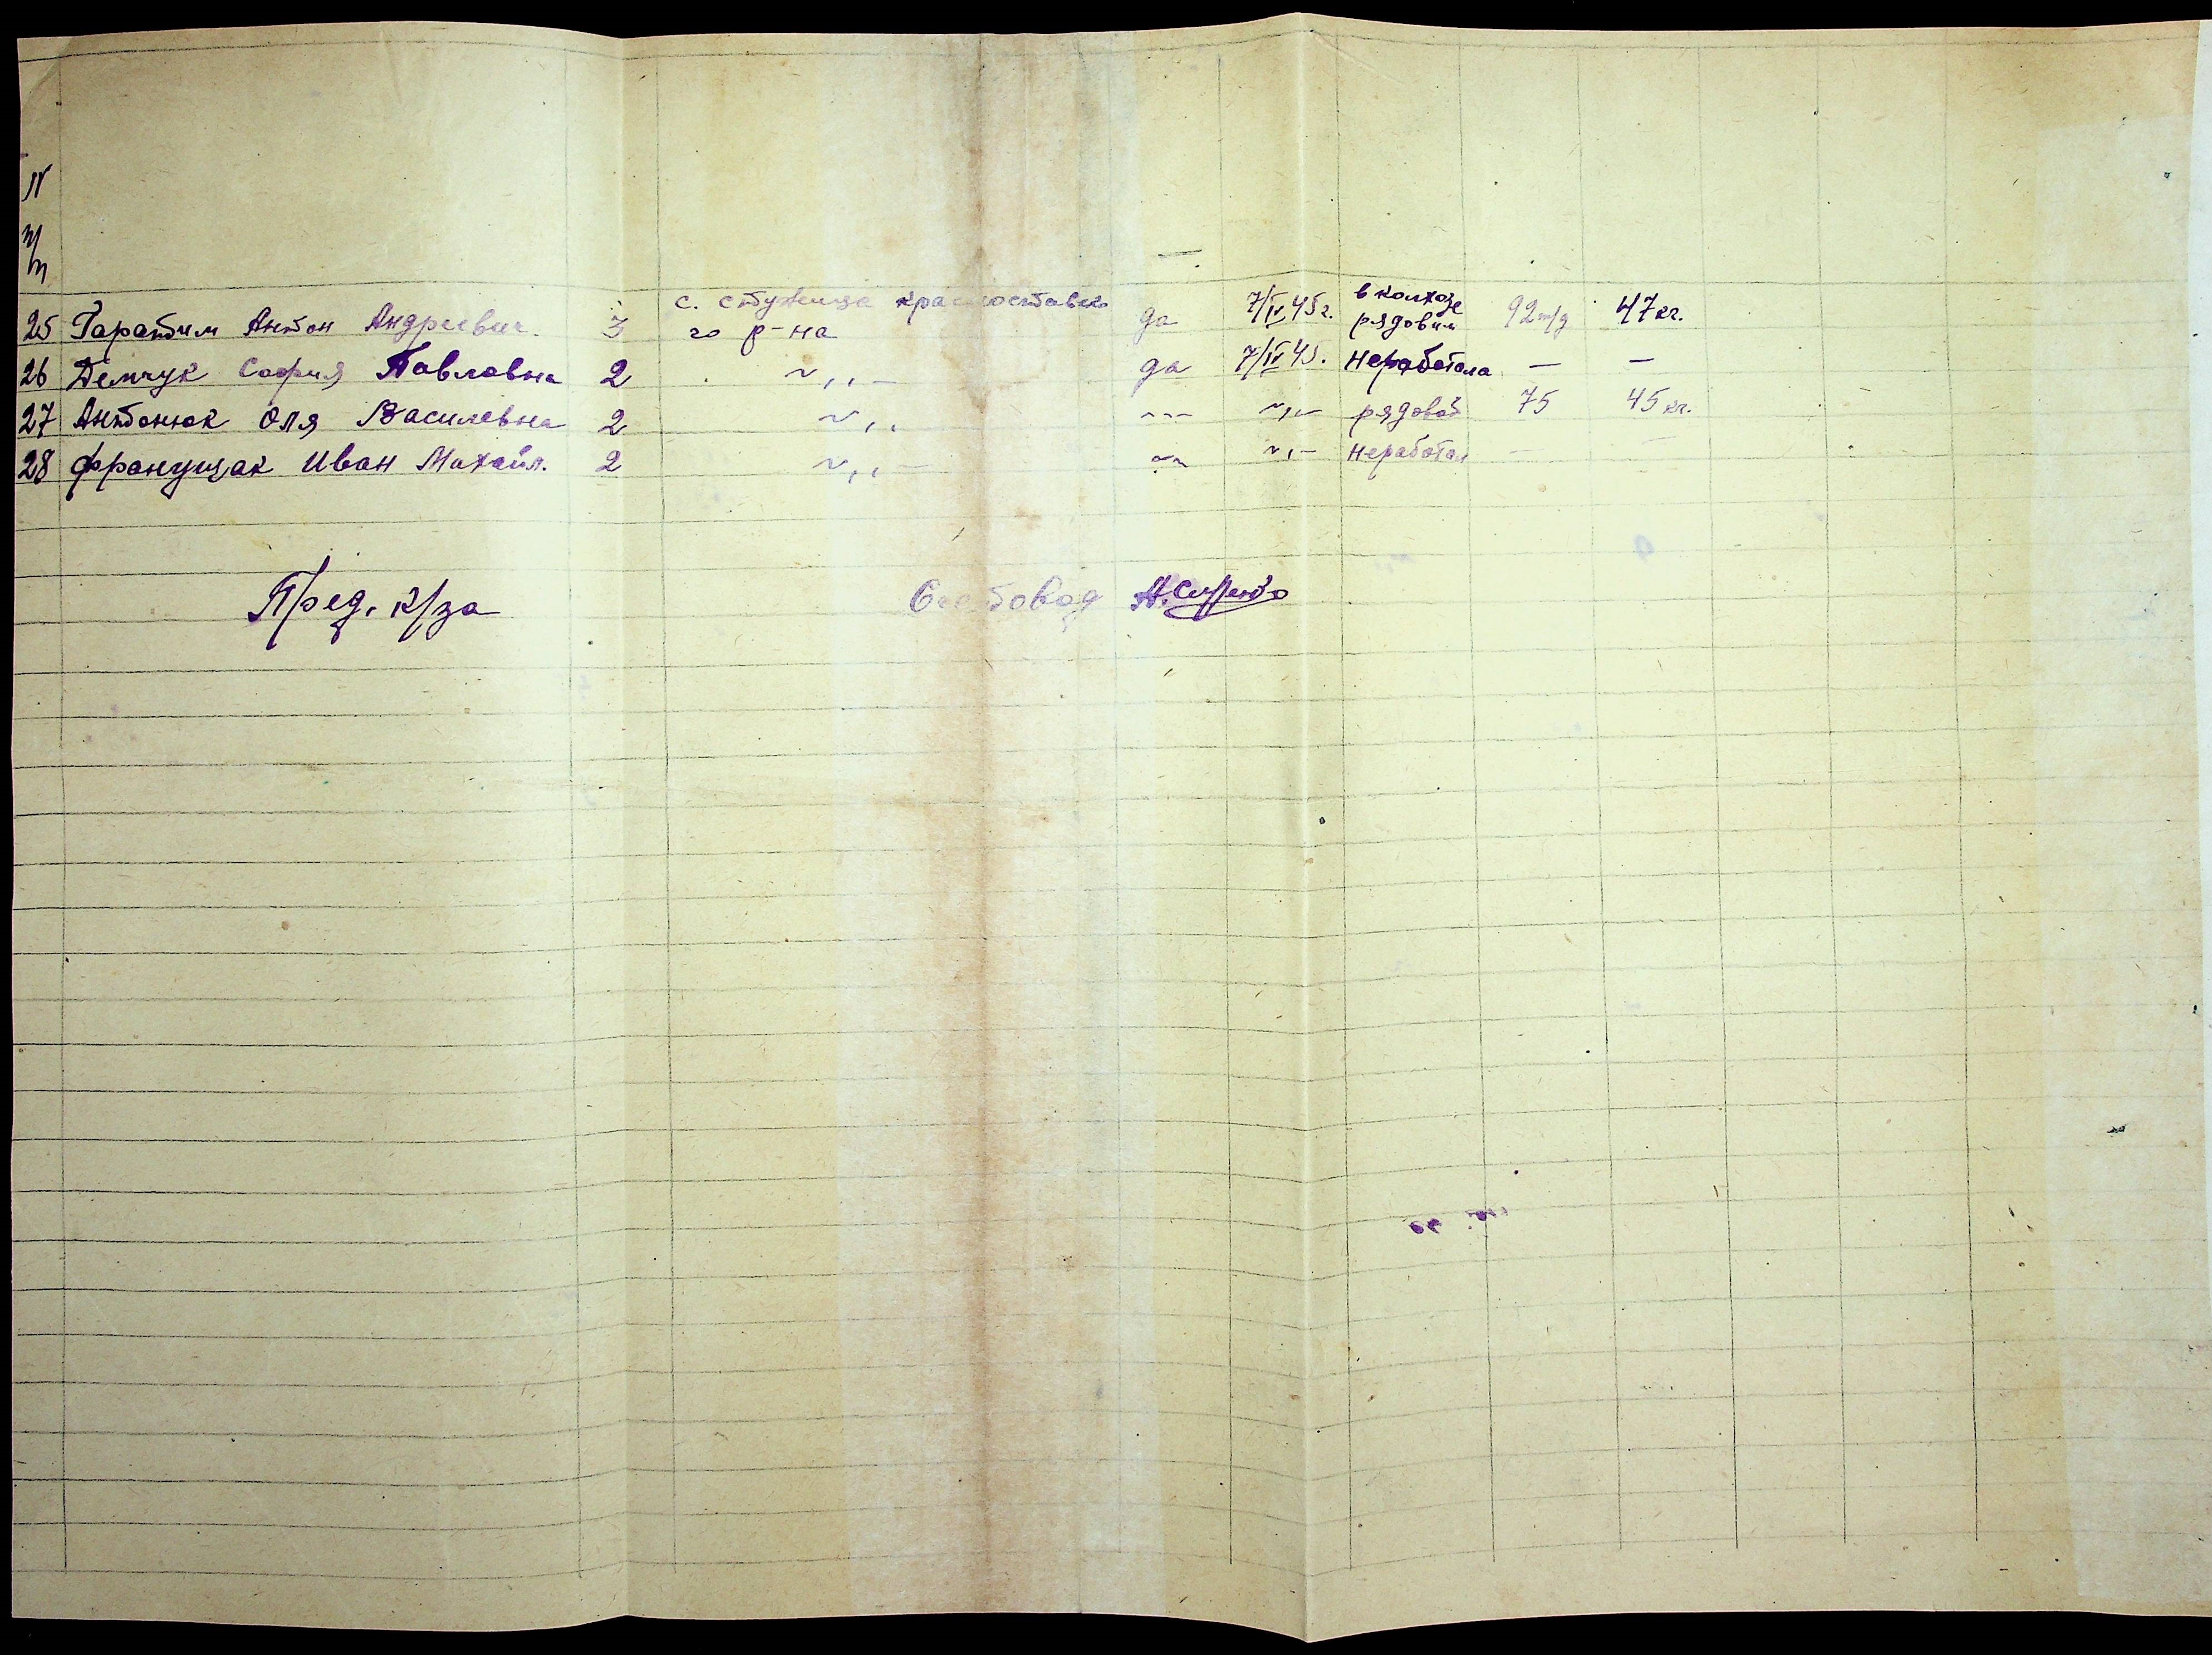 N
п/
п
25 Гаратим Антон Андреевич. 3 с. Стуженца красноставско да 7/IV 45 г. в колхозе 92 т/д 47 кг.
го р-на рядовим
26 Демчук София Павловна 2 ~,,- да 7/IV 45. неработала - -
27 Антонюк Оля Василевна 2 ~,, --- ~,,- рядовой 75 45 кг.
28 Французак Иван Михайл. 2 ~,, -~ ~,- неработал - -
Пред. к/за Счетовод